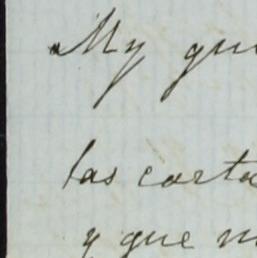 My que
las carta
y que m